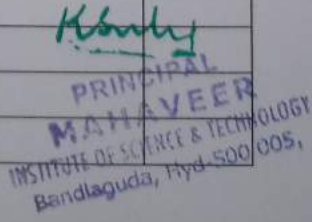 PRINCIPAL
MAHAVEER
INSTITUTE OF SCIENCE & TECHNOLOGY
Bandlaguda, Hyd-500 005,